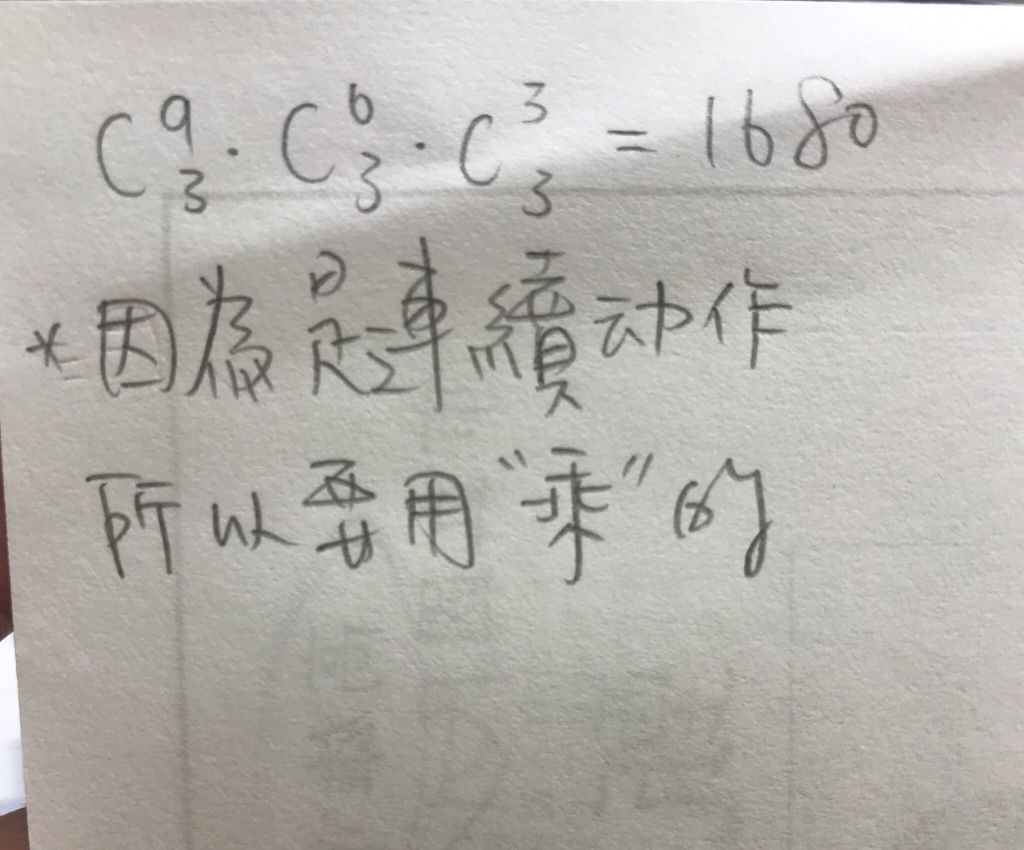 C⁹₃ · C⁶₃ · C³₃ = 1680
*因為是連續动作
所以要用“乘”的